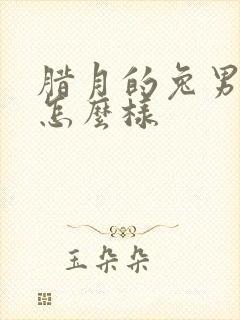 腊月的兔男
怎麼樣
玉朵朵